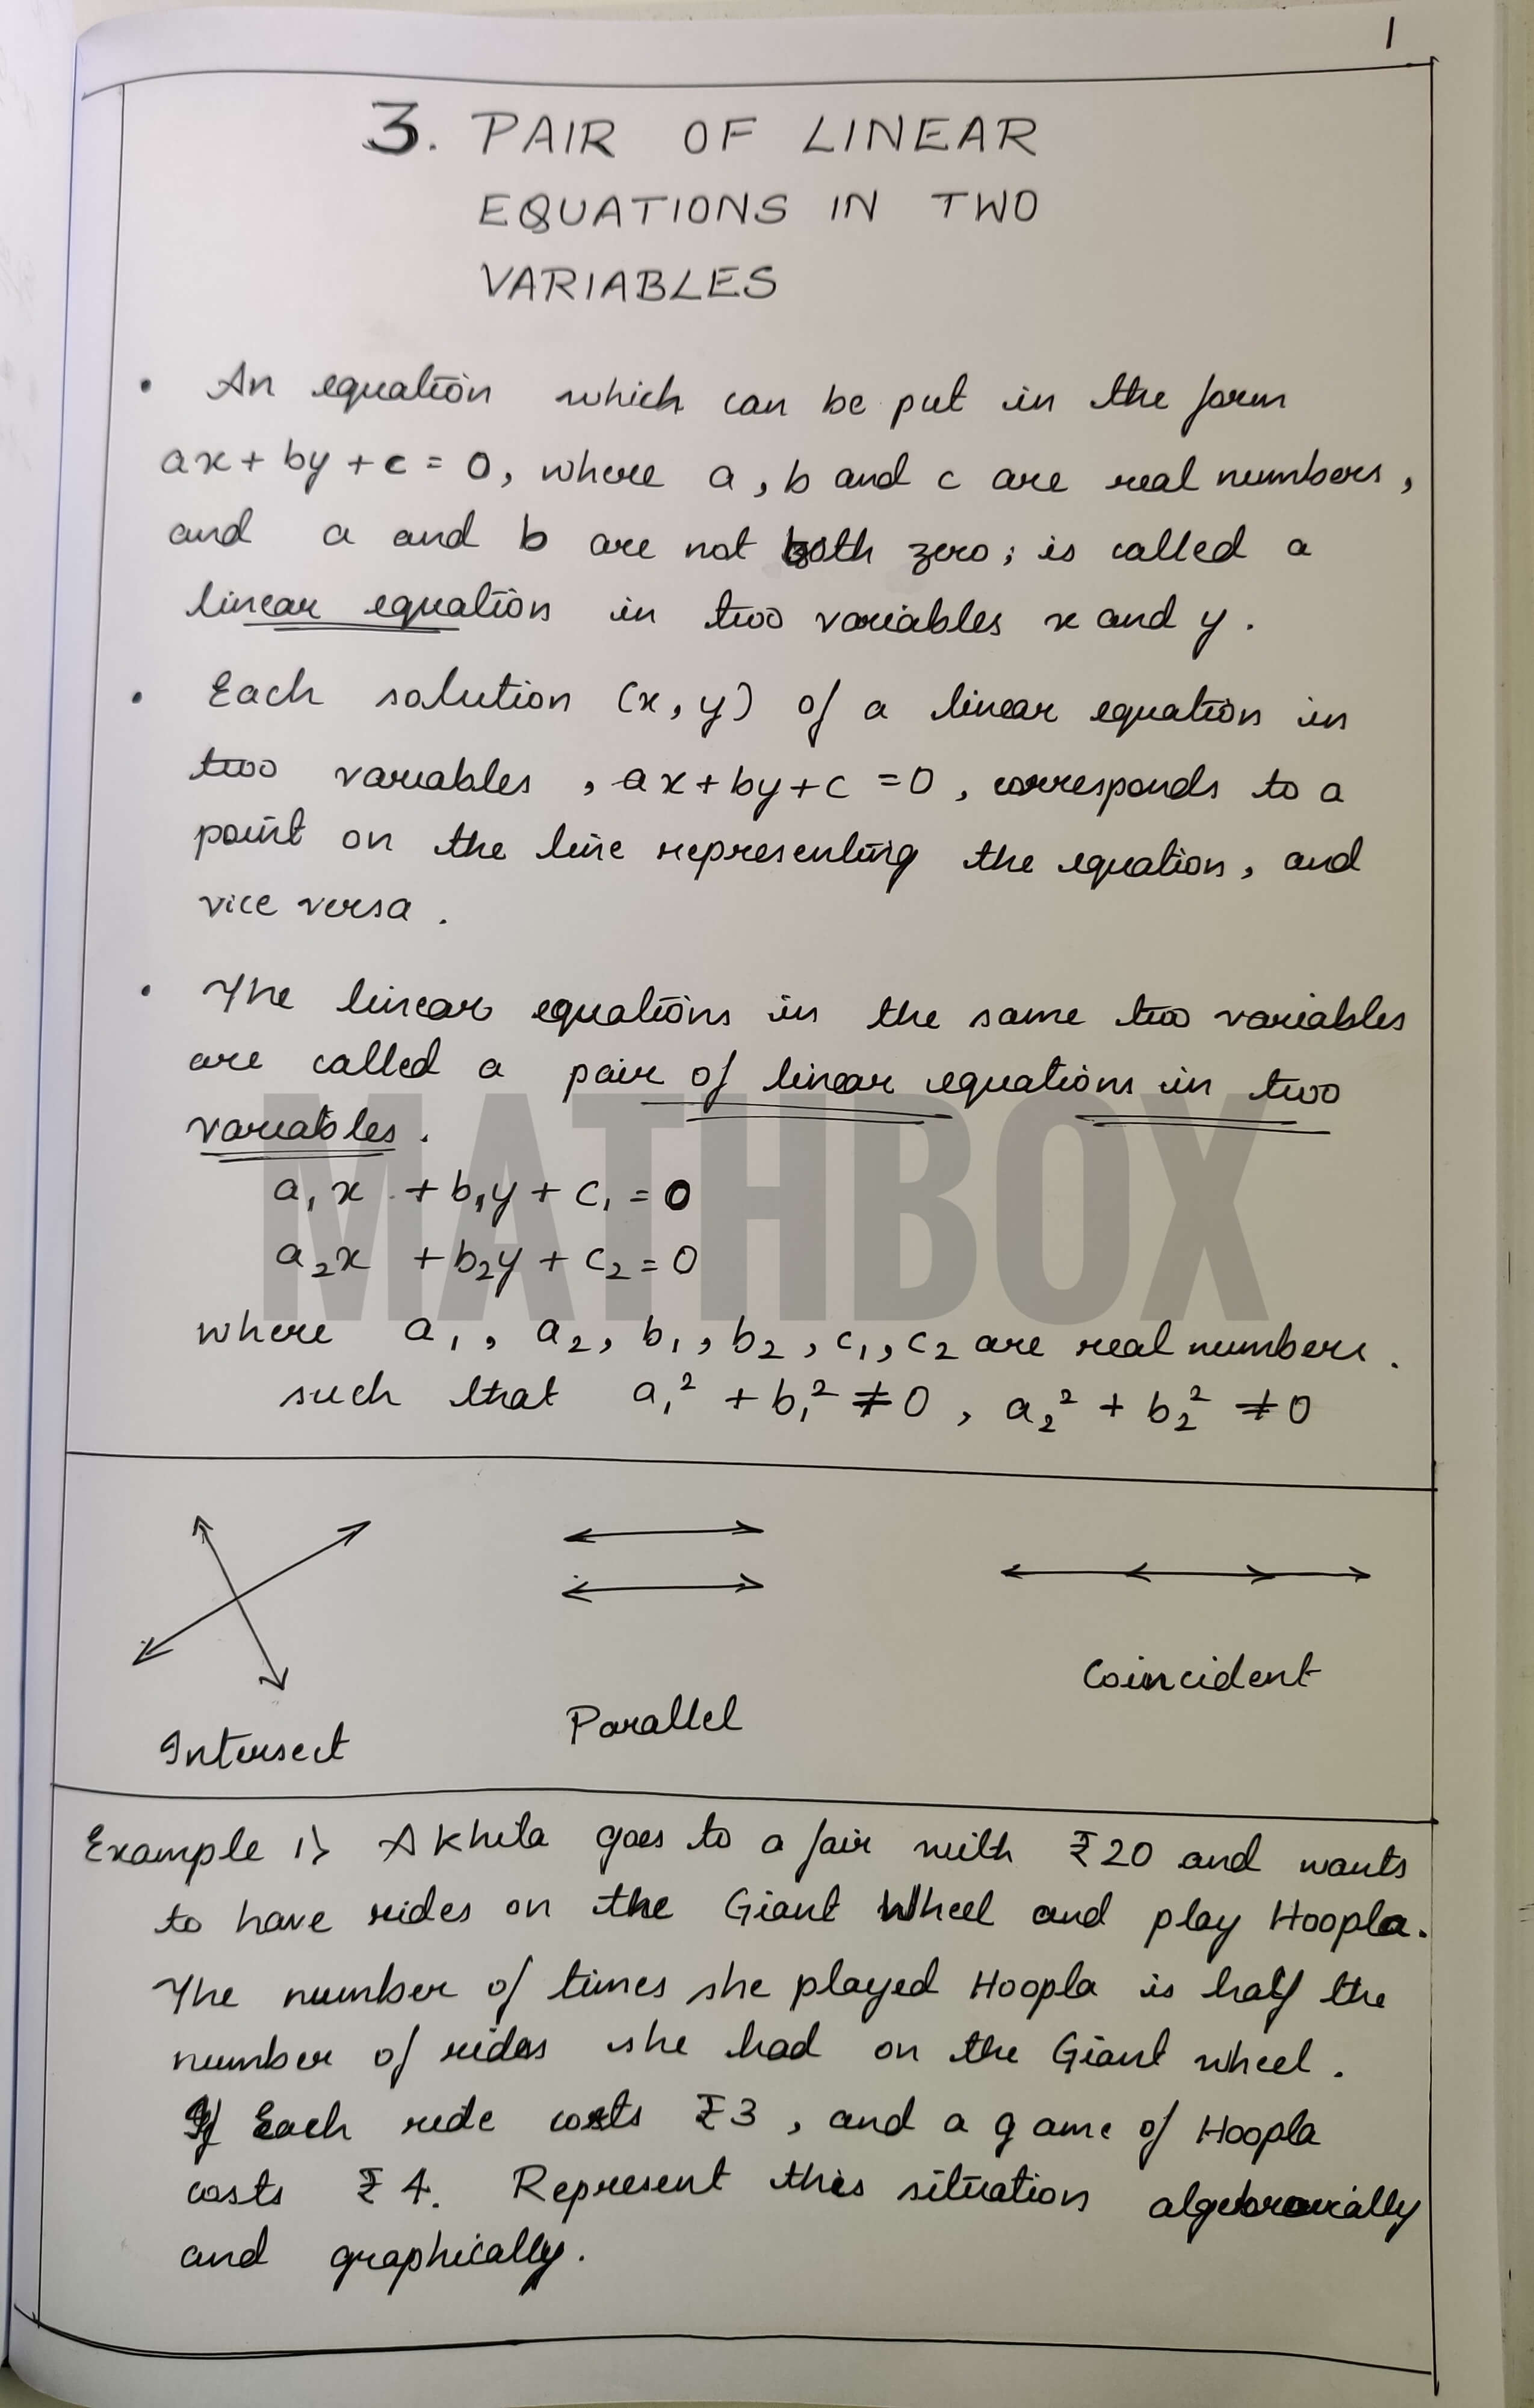 1
3. PAIR OF LINEAR
EQUATIONS IN TWO
VARIABLES
• An equation which can be put in the form
ax + by + c = 0, where a, b and c are real numbers,
and a and b are not both zero; is called a
linear equation in two variables x and y.
• Each solution (x, y) of a linear equation in
two variables, ax + by + c = 0, corresponds to a
point on the line representing the equation, and
vice versa.
• The linear equations in the same two variables
are called a pair of linear equations in two
variables.
MATHBOX
a₁x + b₁y + c₁ = 0
a₂x + b₂y + c₂ = 0
where a₁, a₂, b₁, b₂, c₁, c₂ are real numbers.
such that a₁² + b₁² ≠ 0, a₂² + b₂² ≠ 0
Intersect
Parallel
Coincident
Example 1> Akhila goes to a fair with ₹20 and wants
to have rides on the Giant Wheel and play Hoopla.
The number of times she played Hoopla is half the
number of rides she had on the Giant wheel.
If Each ride costs ₹3, and a game of Hoopla
costs ₹4. Represent this situation algebraically
and graphically.